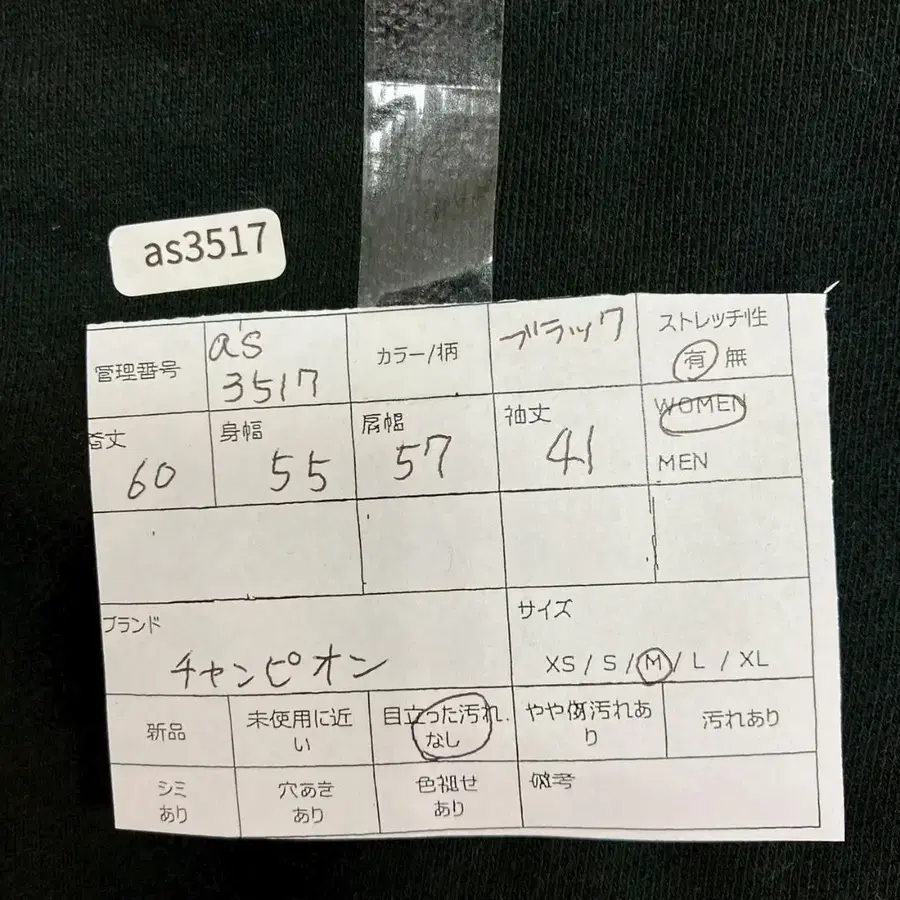 as3517
管理番号
a's
3517
カラー/柄
ブラック
ストレッチ性
有 無
着丈
60
身幅
55
肩幅
57
袖丈
41
WOMEN
MEN
ブランド
チャンピオン
サイズ
XS / S / M / L / XL
新品
未使用に近
い
目立った汚れ
なし
やや傷汚れあ
り
汚れあり
シミ
あり
穴あき
あり
色褪せ
あり
備考